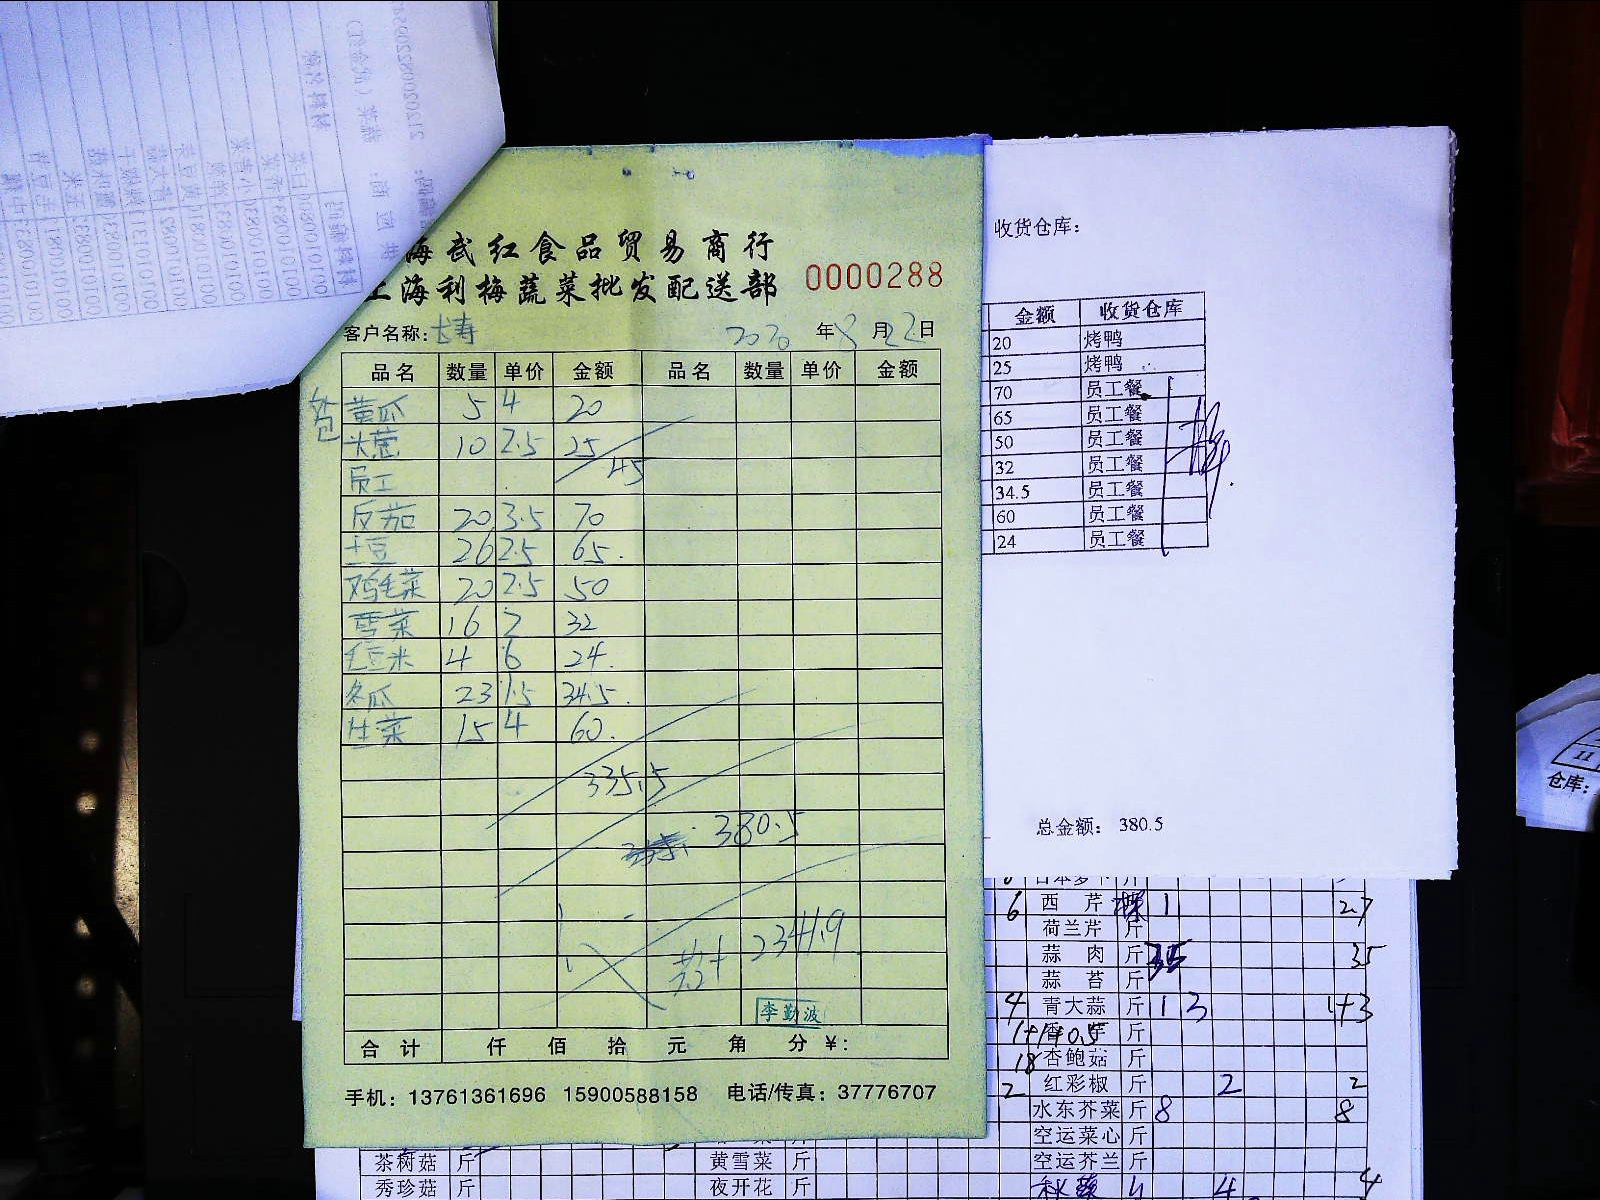 海武红食品贸易商行
上海利梅蔬菜批发配送部
0000288
客户名称:长寿 2020 年 8 月 22 日
品名 数量 单价 金额 品名 数量 单价 金额
外包
黄瓜 5 4 20
大葱 10 2.5 25
45
员工
反茄 20 3.5 70
土豆 26 2.5 65.
鸡毛菜 20 2.5 50
雪菜 16 2 32
毛豆米 4 6 24.
冬瓜 23 1.5 34.5.
生菜 15 4 60.
335.5
380.5
共计 2341.9
李勤波
合计 仟 佰 拾 元 角 分 ¥:
手机：13761361696 15900588158 电话/传真：37776707
收货仓库:
金额 收货仓库
20 烤鸭
25 烤鸭
70 员工餐
65 员工餐
50 员工餐
32 员工餐
34.5 员工餐
60 员工餐
24 员工餐
总金额: 380.5
6 西芹 1 27
荷兰芹 斤
蒜肉 斤 35 35
蒜苔 斤
4 青大蒜 斤 1 3 1+3
1+1+0.5 斤
18 杏鲍菇 斤
2 红彩椒 斤 2 2
水东芥菜 斤 8 8
空运菜心 斤
空运芥兰 斤
4 4
茶树菇 斤 黄雪菜 斤
秀珍菇 斤 夜开花 斤
11
仓库: